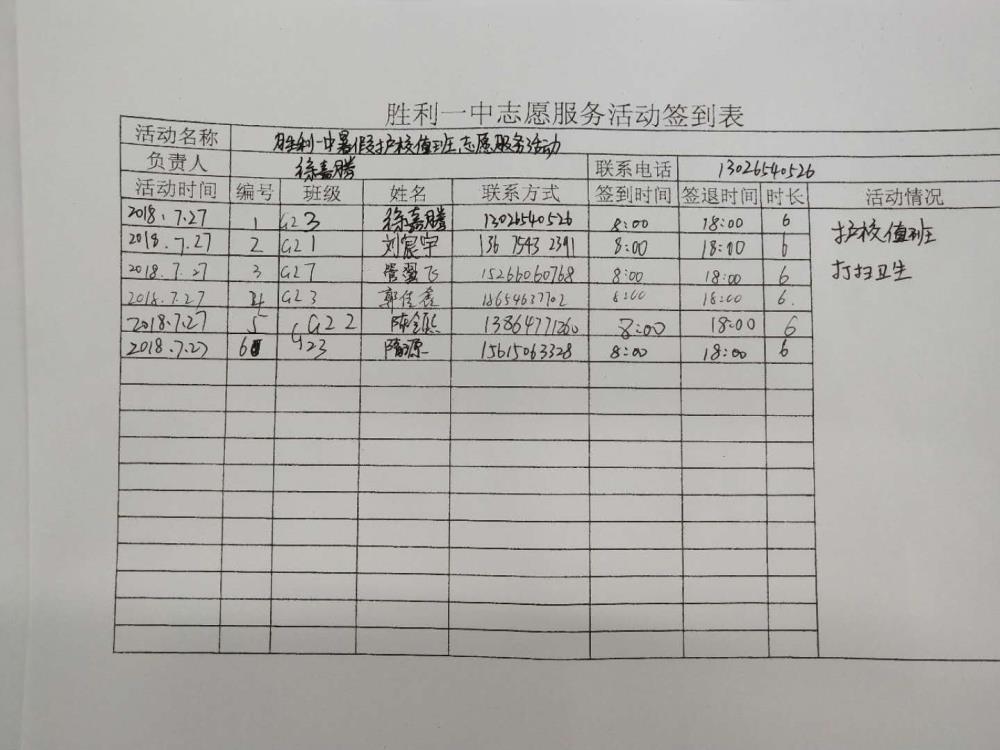 胜利一中志愿服务活动签到表
活动名称 胜利一中暑假护校值班志愿服务活动
负责人 徐嘉腾 联系电话 13026540526
活动时间 编号 班级 姓名 联系方式 签到时间 签退时间 时长 活动情况
2018.7.27 1 G2 3 徐嘉腾 13026540526 8:00 18:00 6 护校值班
2018.7.27 2 G2 1 刘宸宇 136 7543 2391 8:00 18:00 6
2018.7.27 3 G2 7 15266060768 8:00 18:00 6 打扫卫生
2018.7.27 4 G2 3 郭佳鑫 18654637702 8:00 18:00 6.
2018.7.27 5 G2 2 13864771260 8:00 18:00 6
2018.7.27 6 G23 隋源 15615063328 8:00 18:00 6